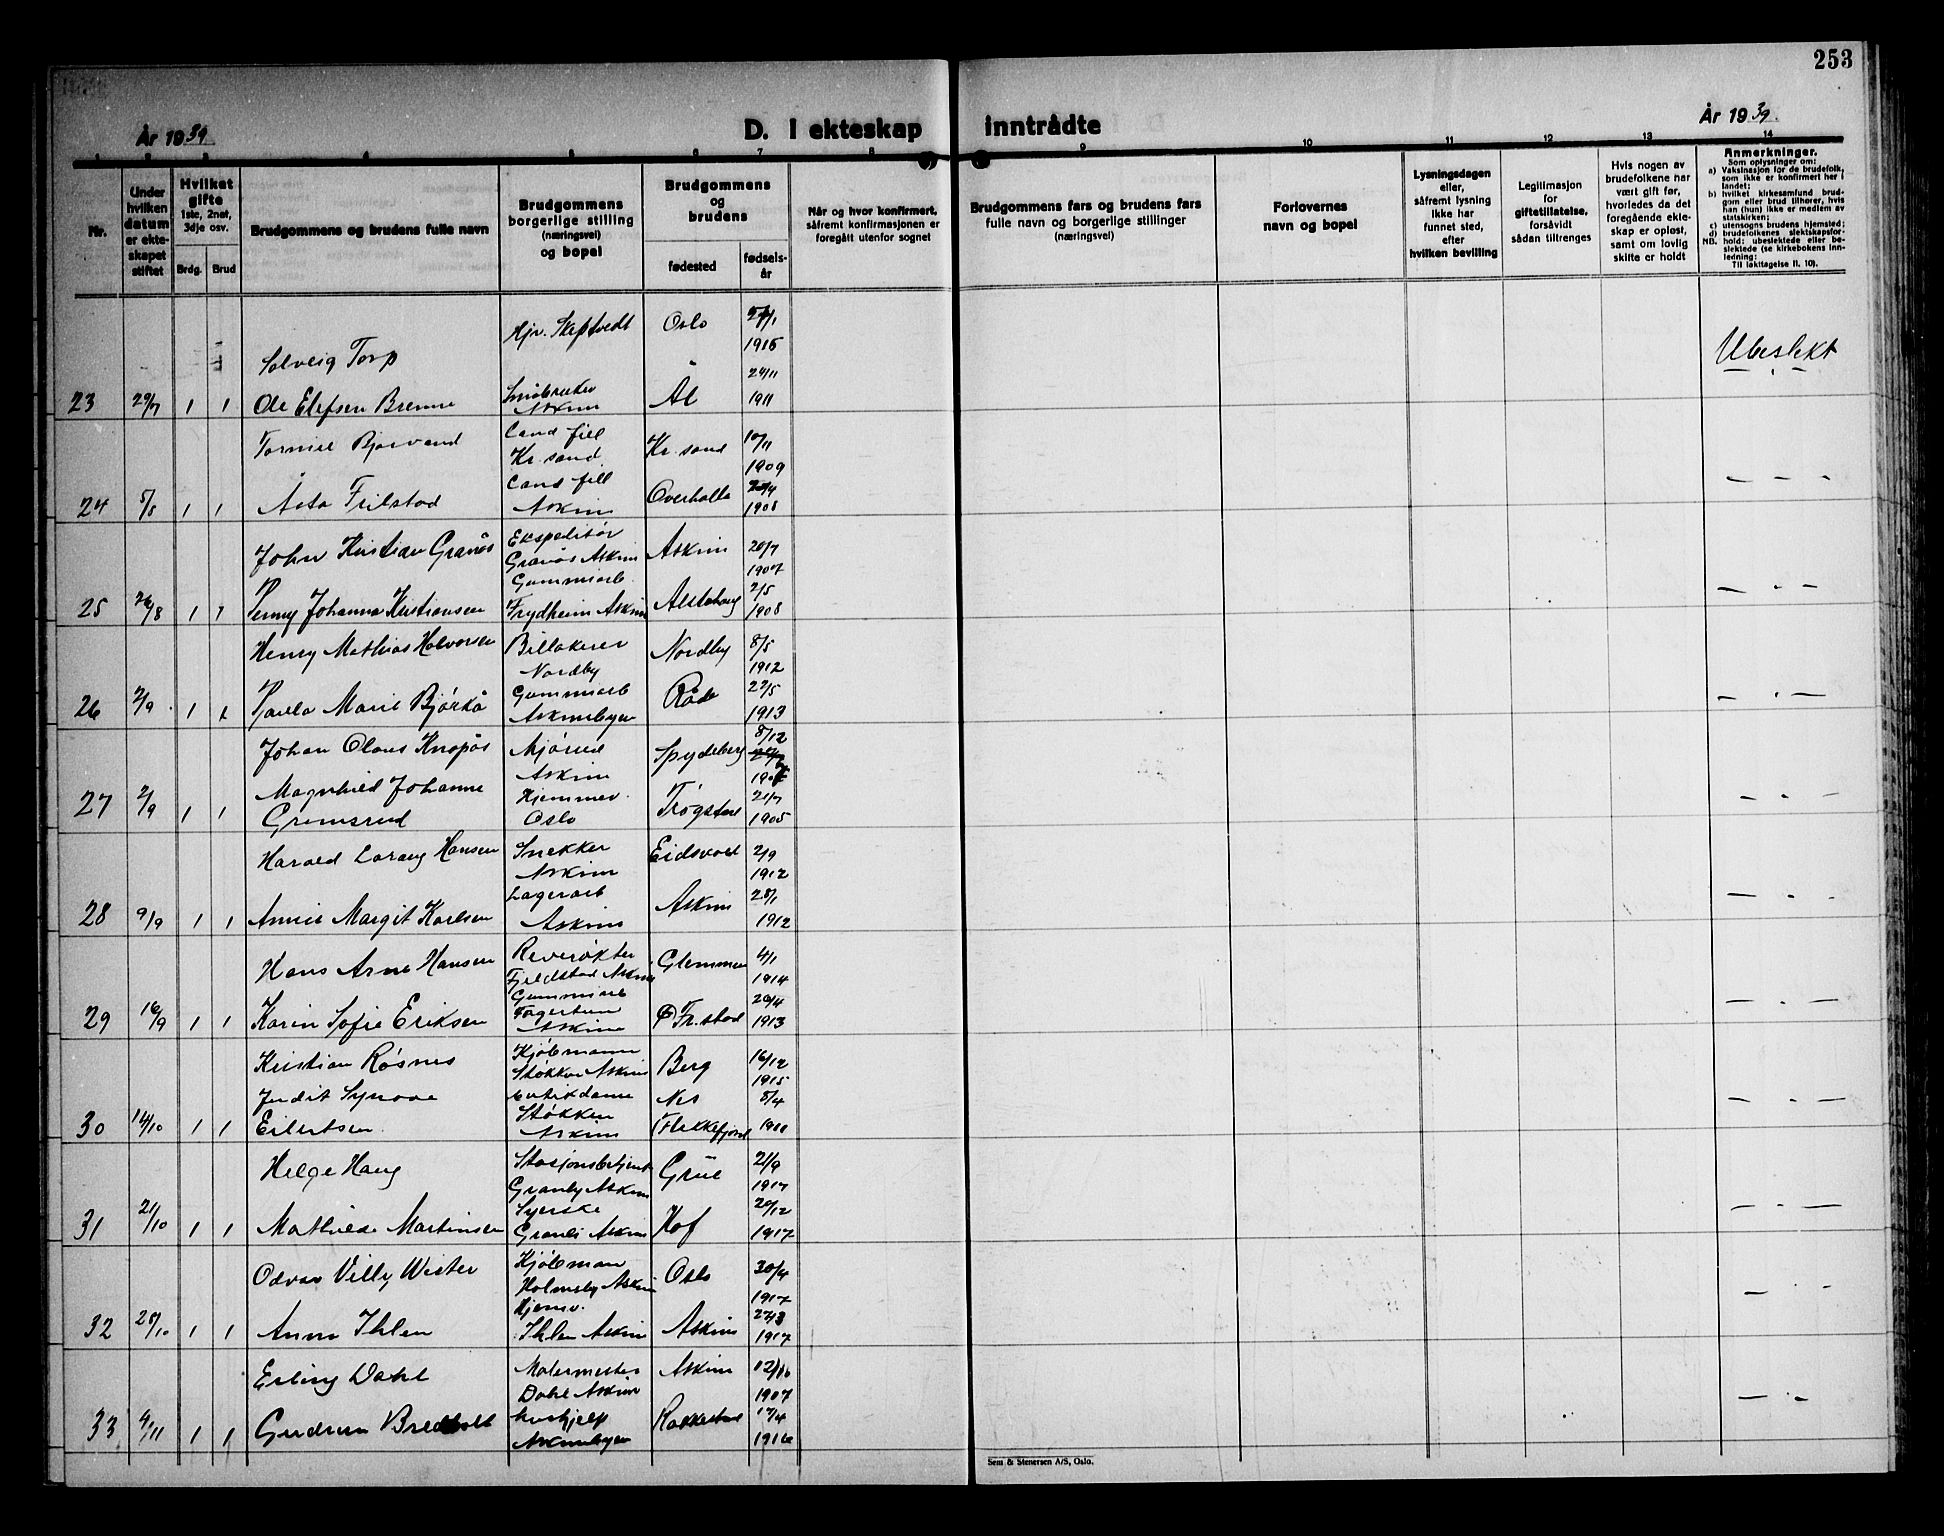 253
År 1939
D. I ekteskap inntrådte
År 1939.
1 2 3 4 5 6 7 8 9 10 11 12 13 14
Nr.
Under
hvilken
datum
er ekte-
skapet
stiftet
Hvilket
gifte
1ste, 2net,
3dje osv.
Brdg. Brud
Brudgommens og brudens fulle navn
Brudgommens
borgerlige stilling
(næringsvei)
og bopel
Brudgommens
og
brudens
fødested
fødsels-
år
Når og hvor konfirmert,
såfremt konfirmasjonen er
foregått utenfor sognet
Brudgommens fars og brudens fars
fulle navn og borgerlige stillinger
(næringsvei)
Forlovernes
navn og bopel
Lysningsdagen
eller,
såfremt lysning
ikke har
funnet sted,
efter
hvilken bevilling
Legitimasjon
for
giftetillatelse,
forsåvidt
sådan tiltrenges
Hvis nogen av
brudefolkene har
vært gift før,
hvorledes da det
foregående ekte-
skap er opløst,
samt om lovlig
skifte er holdt
Anmerkninger.
Som oplysninger om:
a) Vaksinasjon av de brudefolk,
som ikke er konfirmert her i
landet;
b) hvilket kirkesamfund brud-
gom eller brud tilhører, hvis
han (hun) ikke er medlem av
statskirken;
c) utensogns brudens hjemsted;
d) brudefolkenes slektskapsfor-
NB. hold: ubeslektede eller be-
slektede (se kirkebokens inn-
ledning:
Til iakttagelse II. 10).
Skiptvedt Oslo
1915
Solveig Torp
Ubeslekt
24/11
23 29/7 1 1 Ole Elefsen Brenne Småbruker Askim Ål 1911
Tormid Bjorvand Cand fill Kr. sand Kr. sand 10/11 1909
— - -
24 5/8 1 1 Åsta Frilstad Cand fill Askim Overhalla 1908
John Kristian Granås Ekspeditør Granås Askim Askim 20/7 1907
— - —
25 26/8 1 1 Penny Johanna Kristiansen Gummiarb. Frydheim Askim Alstahaug 2/5 1908
Henry Mathias Halvorsen Billakerer Nordby Nordby 8/5 1912
— - —
26 2/9 1 1 Paula Marie Bjørkå Gummiarb Askimbyen Råde 27/5 1913
Johan Olaus Knapås Mjørud Askim Spydeberg 8/12
— - —
27 2/9 1 1 Magnhild Johanne Gromsrud Hjemmev. Oslo Trøgstad 21/7 1905
Harald Lorang Hansen Snekker Askim Eidsvold 2/9 1912
— - —
28 9/9 1 1 Annie Margit Karlsen Lagerarb Askim Askim 28/1 1912
Hans Arne Hansen Reverøkter Fjeldstad Askim Glemmen 4/1 1914
— - —
29 16/9 1 1 Karin Sofie Eriksen Gummiarb Fagertun Askim Fr.stad 20/4 1913
Kristian Røsnes Kjøbmann Støkken Askim Berg 16/12 1915
— - —
30 14/10 1 1 Judit Synøve Eilertsen Butikdame Støkken Askim Nes Flekkefjord 8/4
Helge Haug Stasjonsbetjent Granby Askim Grue 21/9 1917
— - —
31 21/10 1 1 Mathilde Martinsen Syerske Granli Askim Hof 20/12 1917
Odvar Villy Wister Kjøbmann Holmsby Askim Oslo 30/4 1917
— - -
32 28/10 1 1 Anna Ihlen Hjemv. Ihlen Askim Askim 27/3 1917
Erling Dahl Malermester Dahl Askim Askim 12/10 1907
— - -
33 4/11 1 1 Gudrun Bredholt Hushjelp Askimbyen Rakkestad 17/4 1916
Sem & Stenersen A/S, Oslo.